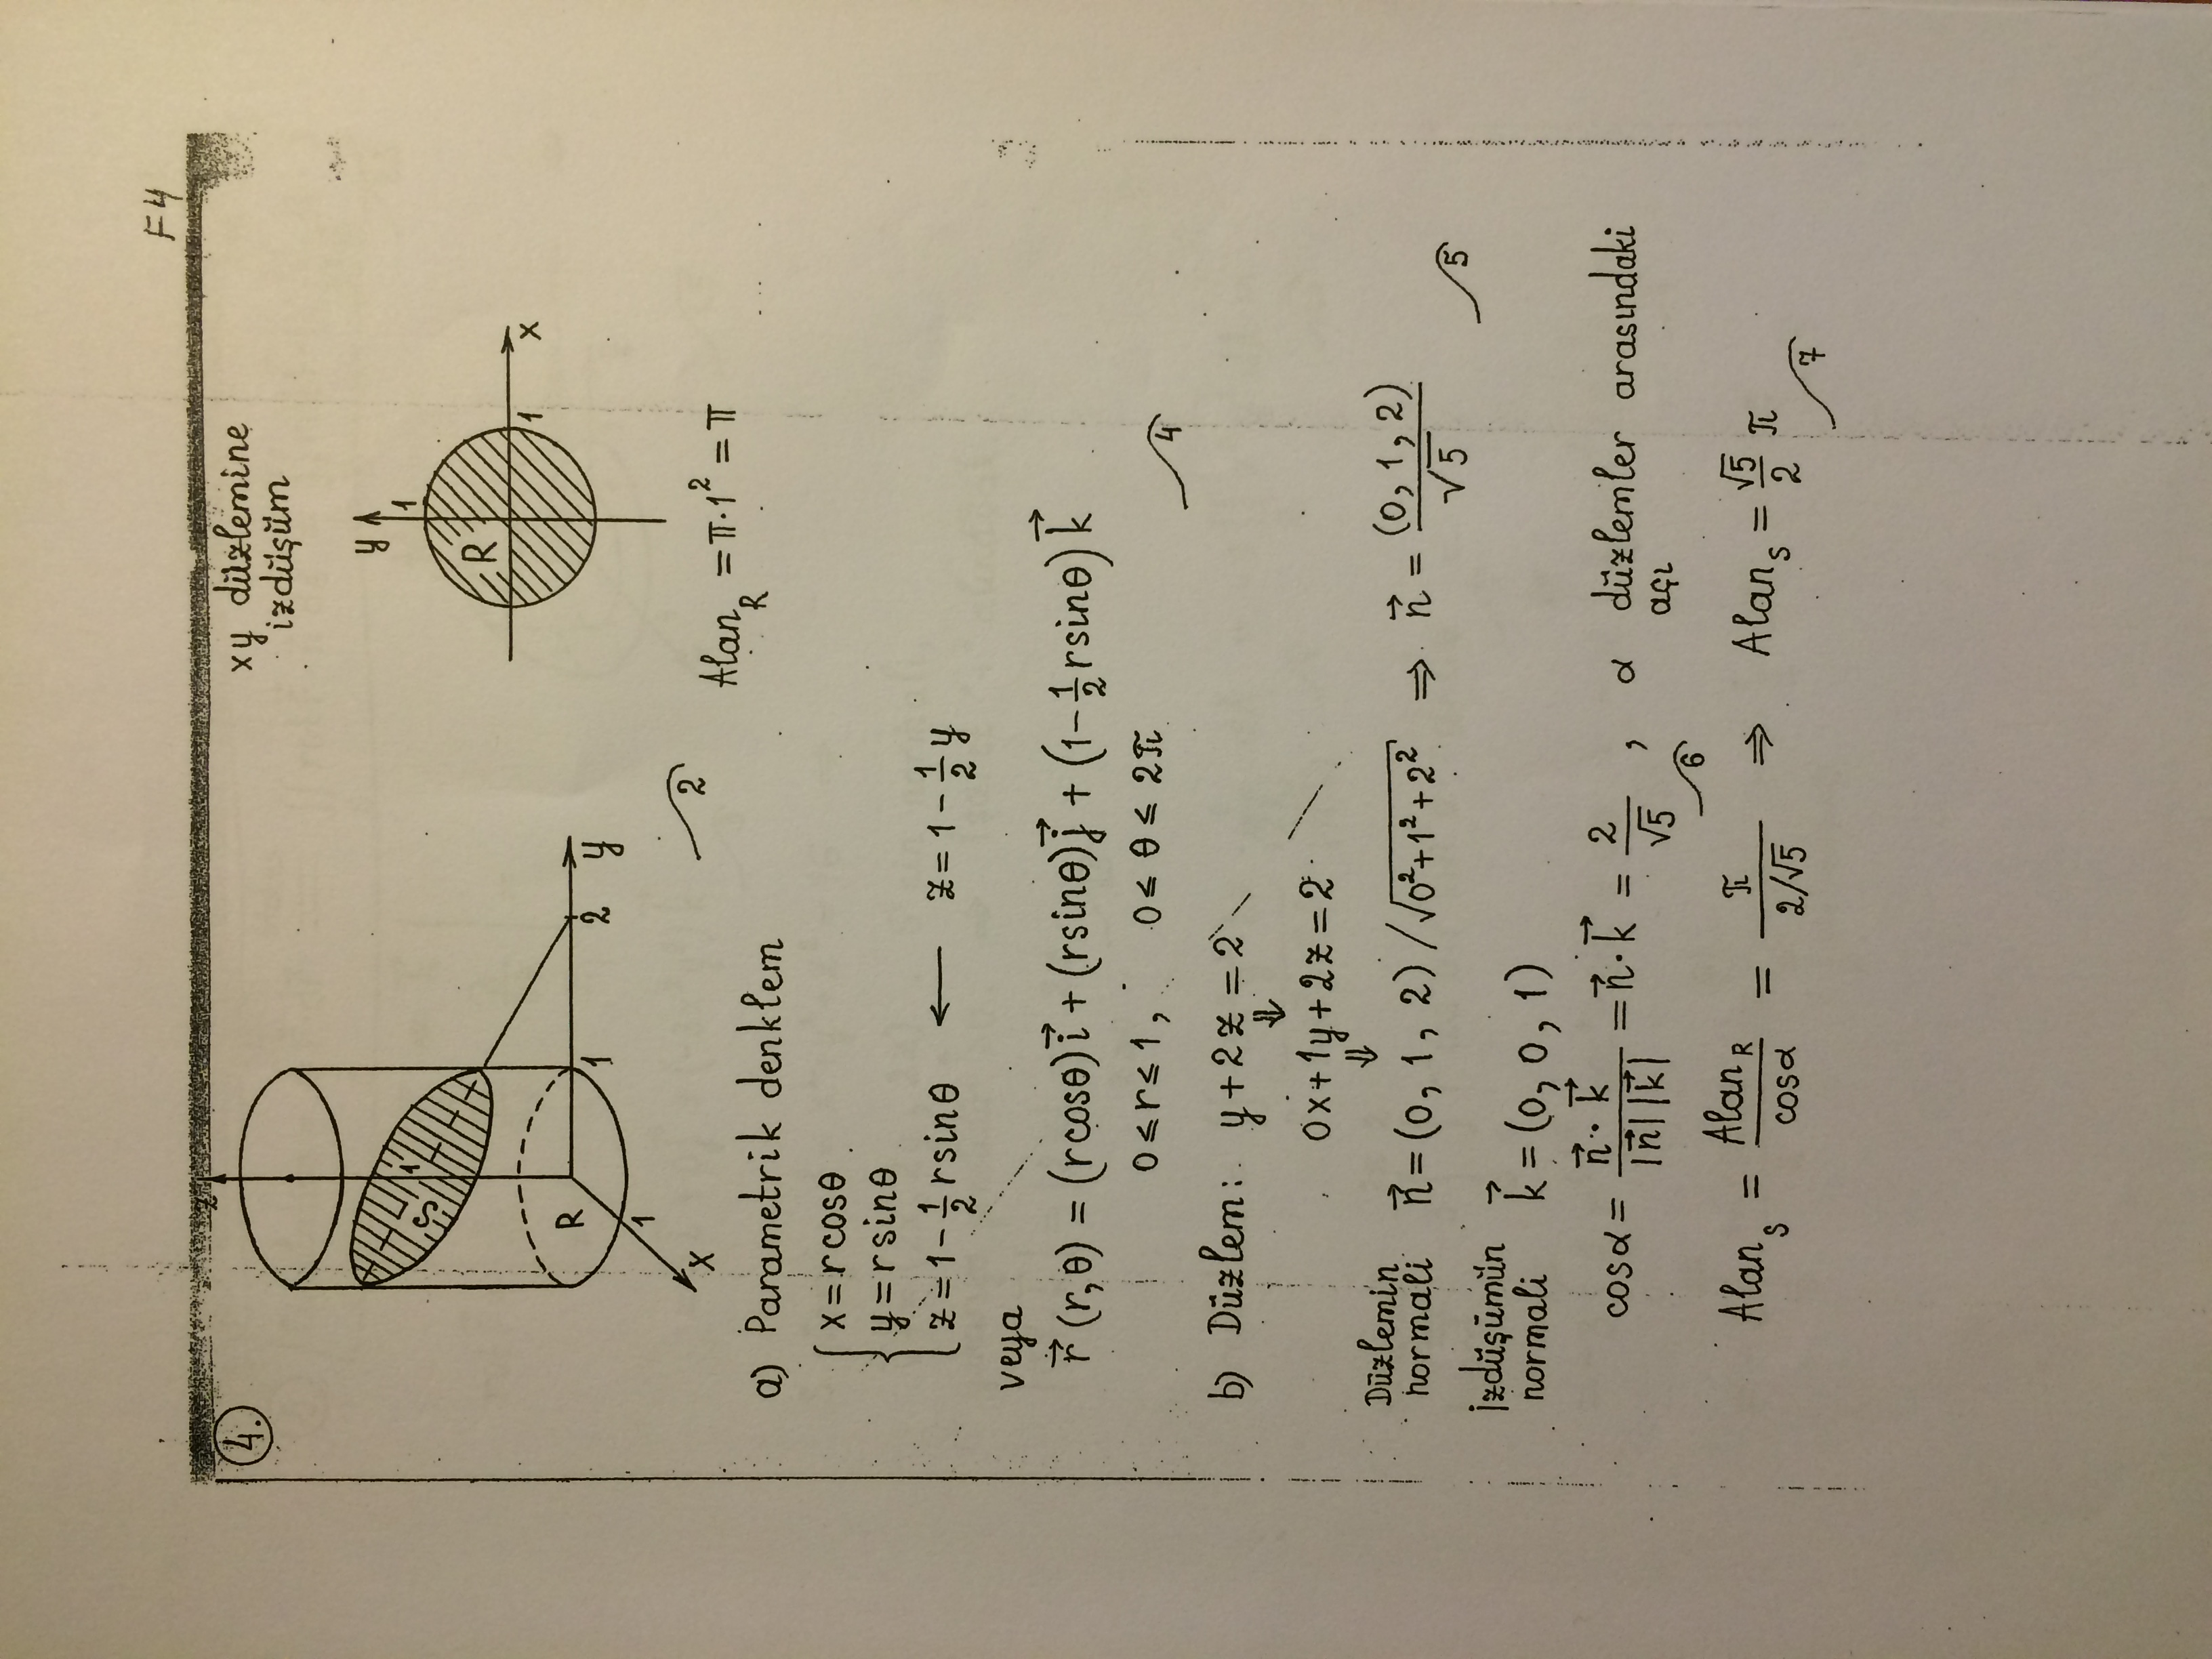 F4
4.
z
S
1
R
1
1
2
y
x
2
xy düzlemine
izdüşüm
y
1
R
1
x
Alan_R = π·1² = π
a) Parametrik denklem
x = r cosθ
y = r sinθ
z = 1 - 1/2 r sinθ ← z = 1 - 1/2 y
veya
r⃗ (r, θ) = (r cosθ) i⃗ + (r sinθ) j⃗ + (1 - 1/2 r sinθ) k⃗
0 ≤ r ≤ 1, 0 ≤ θ ≤ 2π
4
b) Düzlem: y + 2z = 2
⇓
0x + 1y + 2z = 2
⇓
Düzlemin normali n⃗ = (0, 1, 2) / √(0² + 1² + 2²) ⇒ n⃗ = (0, 1, 2) / √5
5
İzdüşümün normali k⃗ = (0, 0, 1)
cosα = n⃗ · k⃗ / |n⃗| |k⃗| = n⃗ · k⃗ = 2/√5 , α düzlemler arasındaki açı
6
Alan_S = Alan_R / cosα = π / (2/√5) ⇒ Alan_S = √5/2 π
7